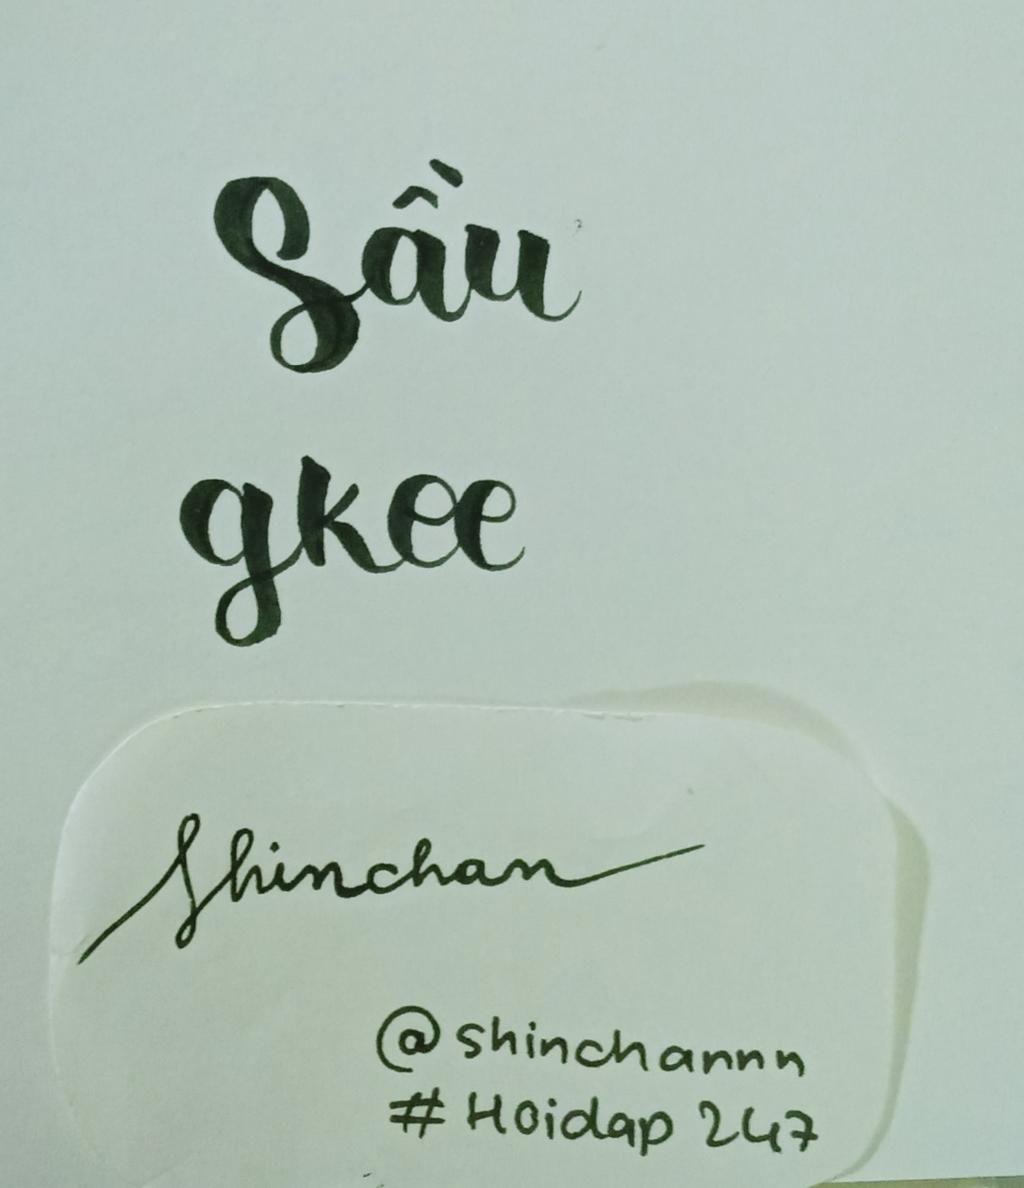 Sầu
gkee
Shinchan
@shinchannn
#Hoidap 247